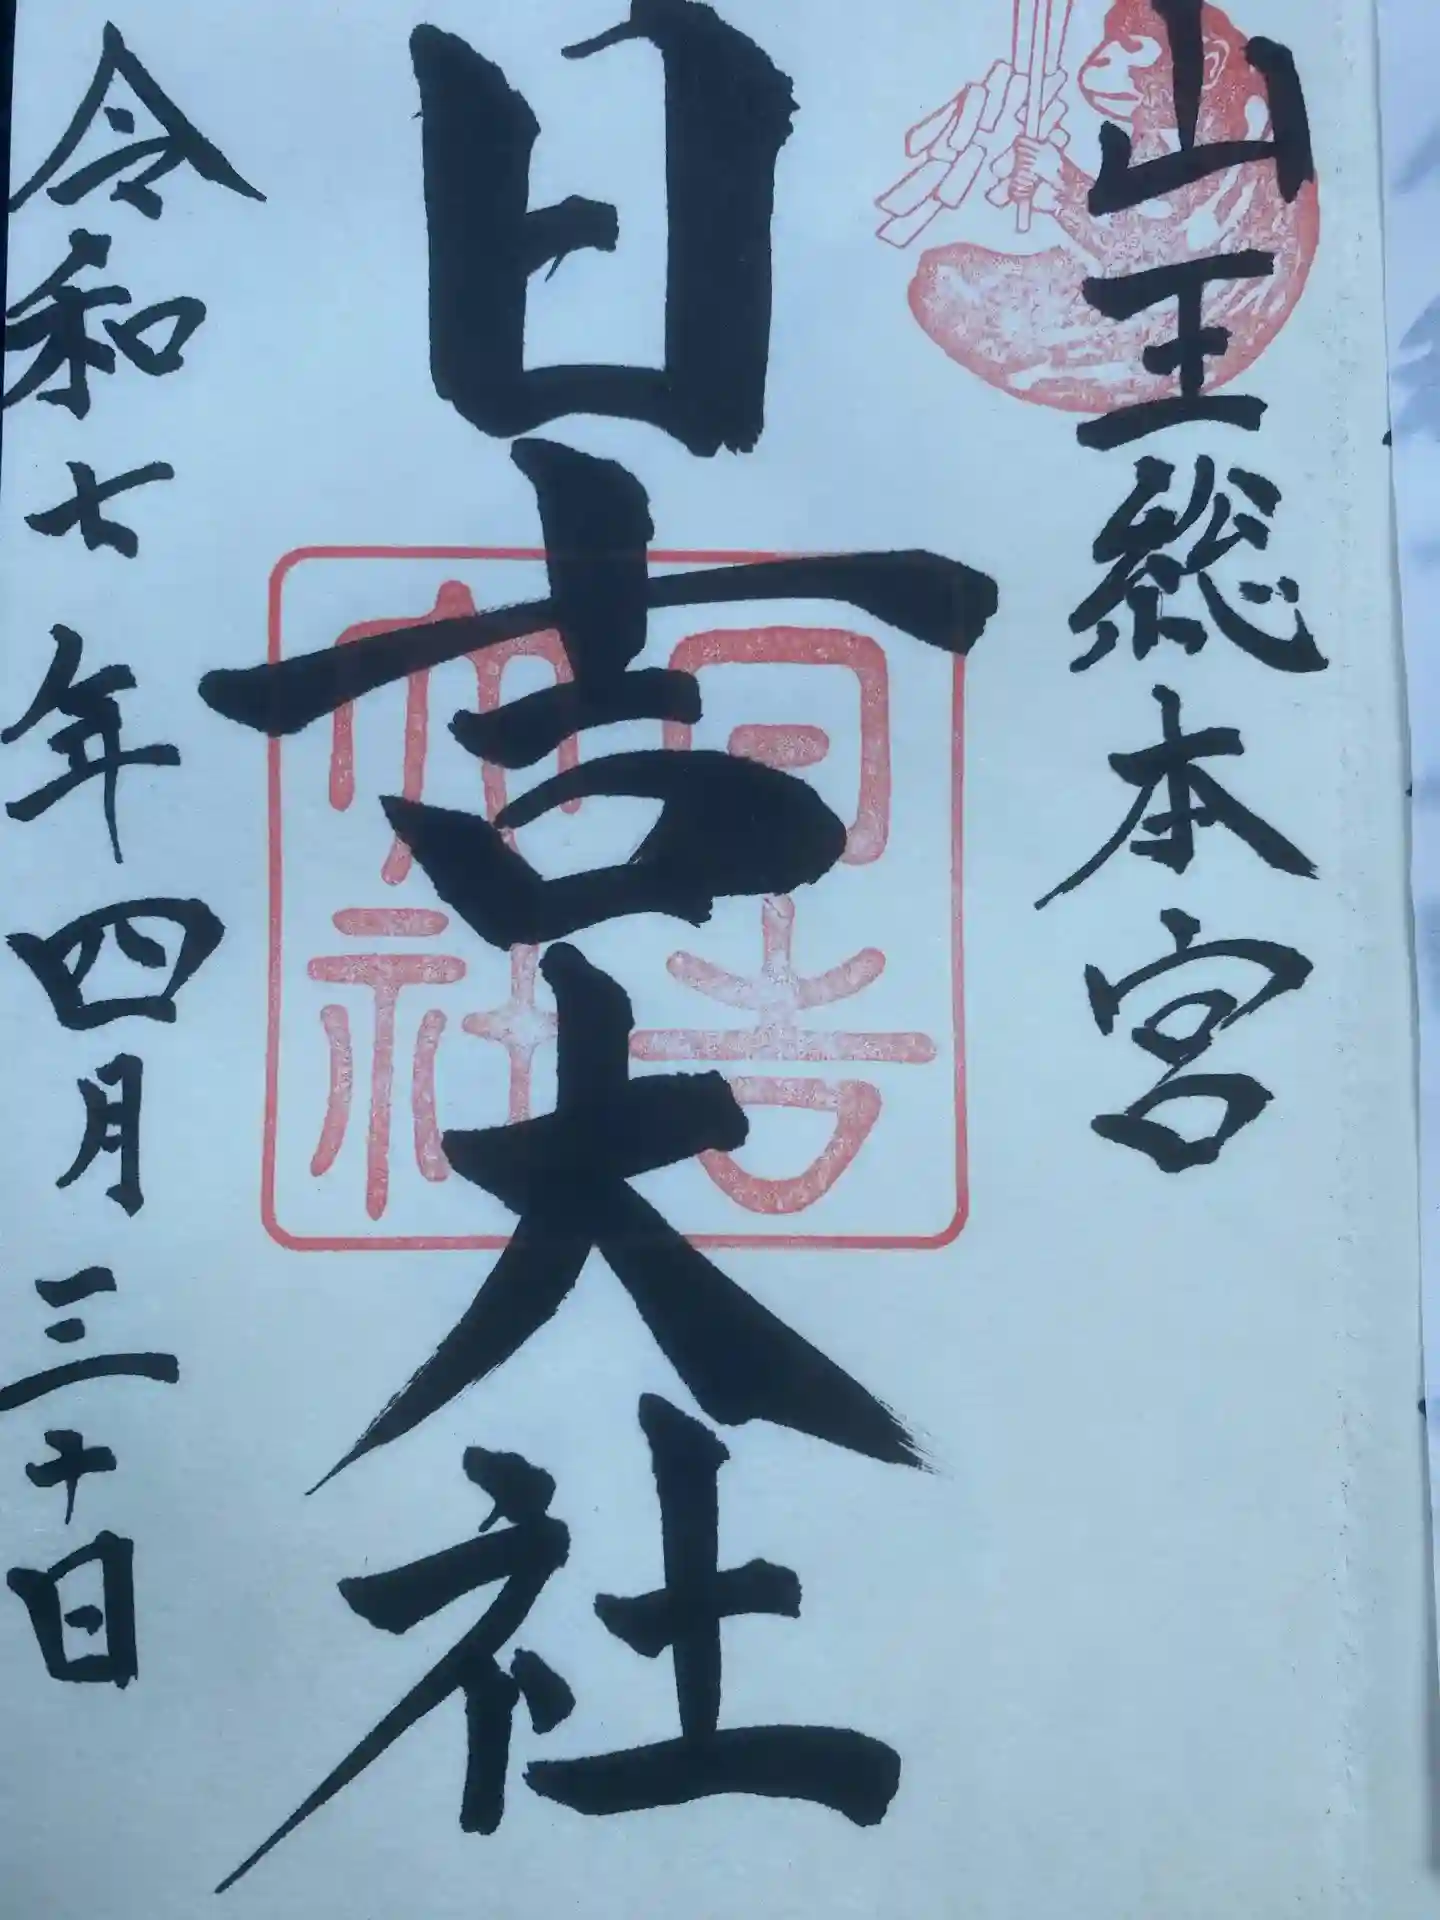 山王総本宮
日吉大社
日吉大社
令和七年四月三十日